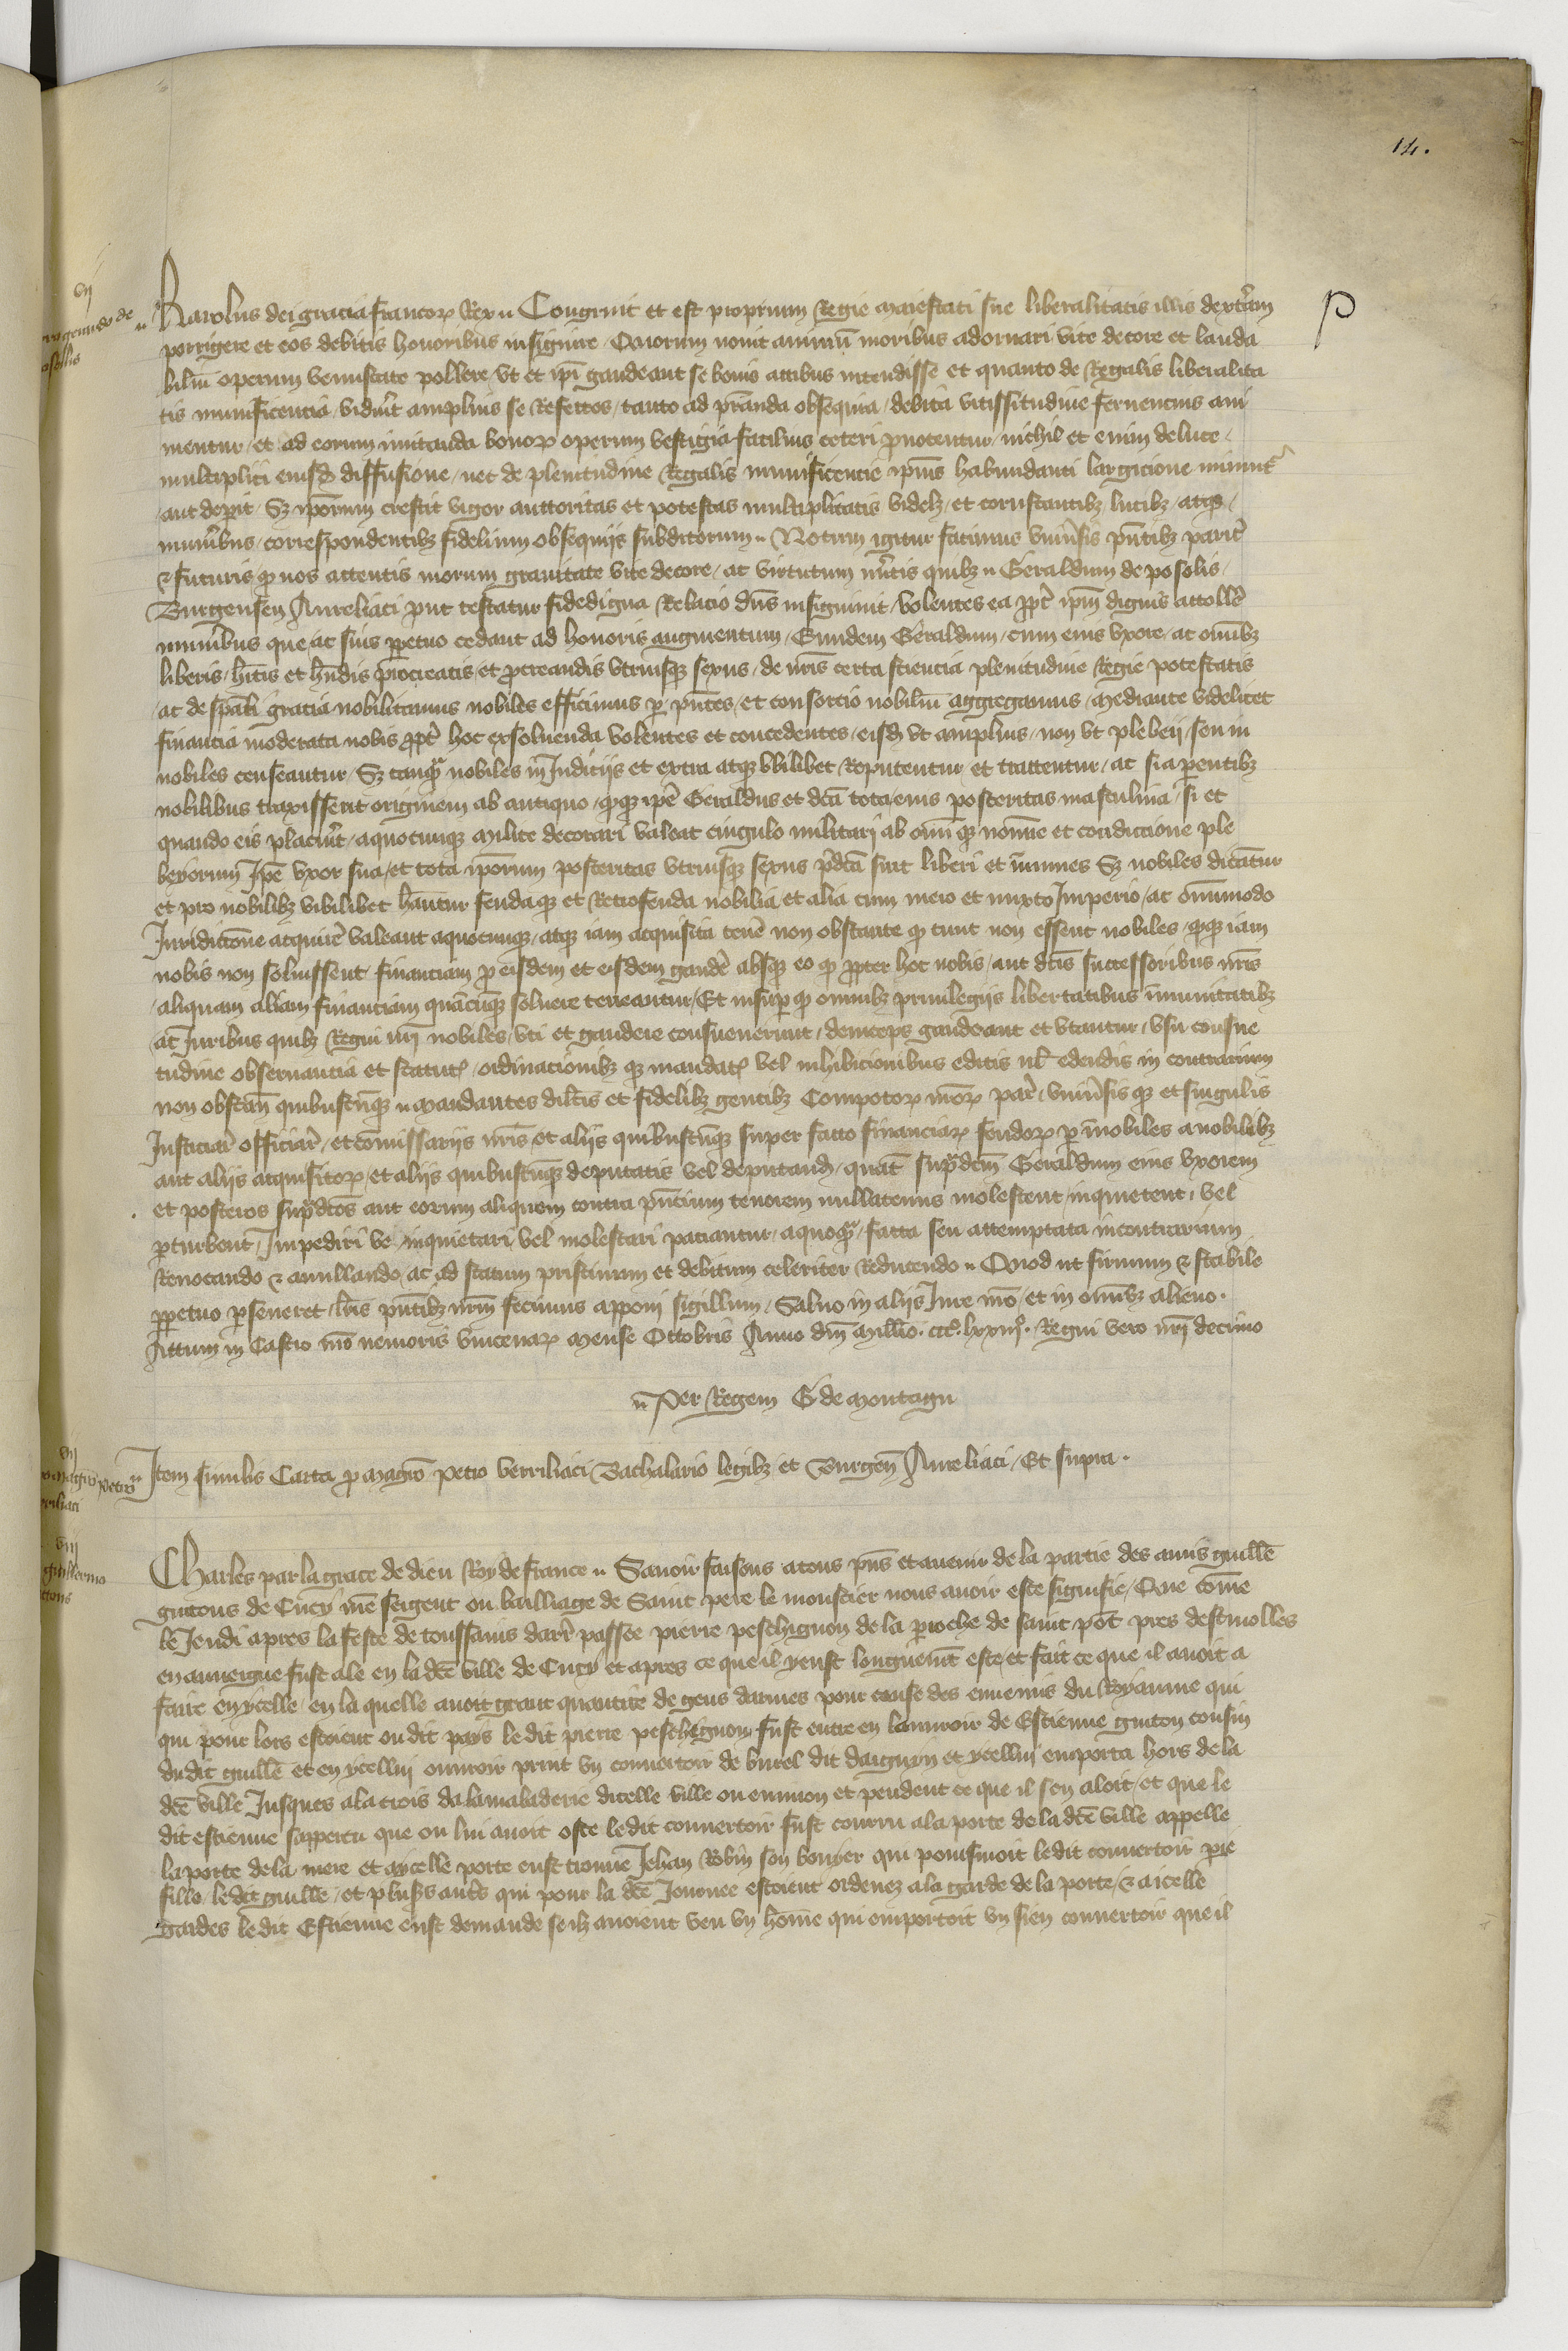 14.
vij
p
Karolus dei gracia francoꝝ Rex Congruit et est proprium Regie maiestati sue liberalitatis illis dext̾am
porrigere et eos debitis honoribus insignire Quorum nouit animū moribus adornari vite decore et lauda
biliū operum venustate pollere vt et ip̄i gaudeant se bonis actibus intendisse et quanto de Regalis liberalita
tis munificencia vid̾int amplius se Refectos tanto ad p̄standa obsequia debita vicissitudine feruencius ani
mentur et ad eorum imitanda bonoꝝ operum vestigia facilius ceteri ꝓuocentur nichil et enim de luce
multiplici eiusd̄ diffusione nec de plenitudine Regalis munificencie ip̄ius habundanti largicione minuit̾
aut deperit Sꝫ ip̄orum crescit vigor auctoritas et potestas multiplicatis videlꝫ et coruscantibꝫ lucibꝫ atqꝫ
mun̾ibus correspondentibꝫ fidelium obsequijs subditorum Notum igitur facimus vniu̾sis pn̄tibꝫ parit̾
& futuris ꝙ nos attentis morum grauitate vite decore ac virtutum m̾itis quibꝫ Geraldum de posolis
Burgensem Aureliaci prout testatur fidedigna Relacio dn̄s insigniuit volentes ea ꝓpt̾ ip̄m dignis attoll̾e
mun̾ibus que ac suis ꝑpetuo cedant ad honoris augmentum Eundem Geraldum cum eius vxore ac om̄ibꝫ
liberis h̄itis et h̄ndis procreatis et ꝓcreandis vtriusqꝫ sexus de nr̄is certa sciencia plenitudine Regie potestatis
ac de sp̄ali gracia nobilitamus nobiles efficimus ꝑ pn̄tes et consorcio nobiliū aggregamus Mediante videlicet
financia moderata nobis ꝓpt̾ hoc exsoluenda volentes et concedentes eisd̄ vt amplius non vt plebeij seu in
nobiles censeantur Sꝫ tanqꝫ nobiles in Judicijs et extra atqꝫ vbilibet Reputentur et tractentur ac si a parentibꝫ
nobilibus traxissent originem ab antiquo ꝙqꝫ ip̄e Geraldus et dc̄a tota eius posteritas masculina si et
quando eis placu̾it aquocunqꝫ milite decorari valeat cingulo militari ab om̄i qꝫ nomine et condicione ple
beyorum Ip̄e vxor sua et tota ip̄orum posteritas vtriusqꝫ sexus p̄dc̄a sint liberi et immunes Sꝫ nobiles dicātur
et pro nobilibꝫ vbilibet h̄antur feudaqꝫ et Retrofeuda nobilia et alia cum mero et mixto Imperio ac omnimodo
Juridic̄one acquir̾e valeant aquocunqꝫ atqꝫ iam acquisita ten̾e non obstante ꝙ tunc non essent nobiles ꝙqꝫ iam
nobis non soluissent financiam ꝓ eisdem et eisdem gaud̾e absqꝫ eo ꝙ ꝓpter hoc nobis aut dc̄is successoribus nr̄is
aliquam aliam financiam quācūqꝫ soluere teneantur Et insuꝑ ꝙ omnibꝫ priuilegijs libertatibus imunitatibꝫ
ac Juribus quibꝫ Regni nr̄i nobiles vti et gaudere consueuerunt deinceps gaudeant et vtantur vsu consue
tudine obseruancia et statut̾ ordinacionibꝫ qꝫ mandat̾ vel inhibicionibus editis vel edendis in contrarium
non obstan̄ quibuscūqꝫ Mandantes dil̄cis et fidelibꝫ gentibꝫ Compotoꝝ nr̄oꝝ par̾ vniu̾sis qꝫ et singulis
Justiciar̾ officiar̾ et comissarijs nr̄is et alijs quibuscūqꝫ super facto financiaꝝ feudoꝝ ꝑ īnobiles a nobilibꝫ
aut alijs acquisitoꝝ et alijs quibuscūqꝫ deputatis vel deputand̄ quat̄ supradc̄m Geraldum eius vxorem
et posteros supradc̄os aut eorum aliquem contra pn̄cium tenorem nullatenus molestent inquietent vel
ꝑturbent Impediri ve inquietari vel molestari paciantur aquoqꝫ facta seu attemptata incontrarium
Reuocando & anullando ac ad statum pristinum et debitum celeriter Reducendo Quod ut firmum & stabile
ꝑpetuo ꝑseueret lr̄is pn̄tibꝫ nr̄m fecimus apponi sigillum Saluo in alijs Jure nr̄o et in om̄ibꝫ alieno.
Actum in Castro nr̄o nemoris vincenaꝝ Mense Octobris Anno dn̄i Millio. ccc°. lxxiij°. Regni vero nr̄i decimo
Per Regem G de Montagu
vij
Item similis Carta ꝓ magr̄o Petro verriliaci Bachalario legibꝫ et Burgen̄ Aureliaci Et supra.
viij
guillermo
Charles par la grace de dieu Roy de france Sauoir faisons atous pn̄s et auenir de la partie des amis guill̄e
guitons de Cucy n̄re sergent ou bailliage de Saint pere le moustier nous auoir este signifie Que cōme
le Jeudi apres la feste de toussains darr̾ passee pierre peschignon de la ꝑroche de saint pōt pres destrolles
en auuergne fust ale en la dc̄e ville de Cucy et apres ce que il yeust longuem̄t este et fait ce que il auoit a
faire enycelle en la quelle auoit grant quantite de gens darmes pour cause des ennemis du Royaume qui
qui pour lors estoient ou dit pays le dit pierre peschignon fust entre en lauuroir de Estienne guiton cousin
du dit guill̄e et en ycellui ouuroir print vn couuertoir de burel dit daiguyn et ycellui emporta hors de la
dc̄e ville Jusques ala crois de la maladerie dicelle ville ou enuiron et pendent ce que il sen aloit et que le
dit estienne sapperceu que on lui auoit oste ledit couuertoir fust couru ala porte de la dc̄e ville appelle
la porte de la mere et aycelle porte eust trouue Jehan Robin son bouyer qui poursiuoit ledit couuertoir ꝑre
fille le dit guille et pluss̾s aut̾s qui pour la dc̄e Journee estoient ordenez ala garde de la porte & aicelle
gardes le dit Estienne eust demande se ilz auoient veu vn hōme qui emportoit vn sien couuertoir que il